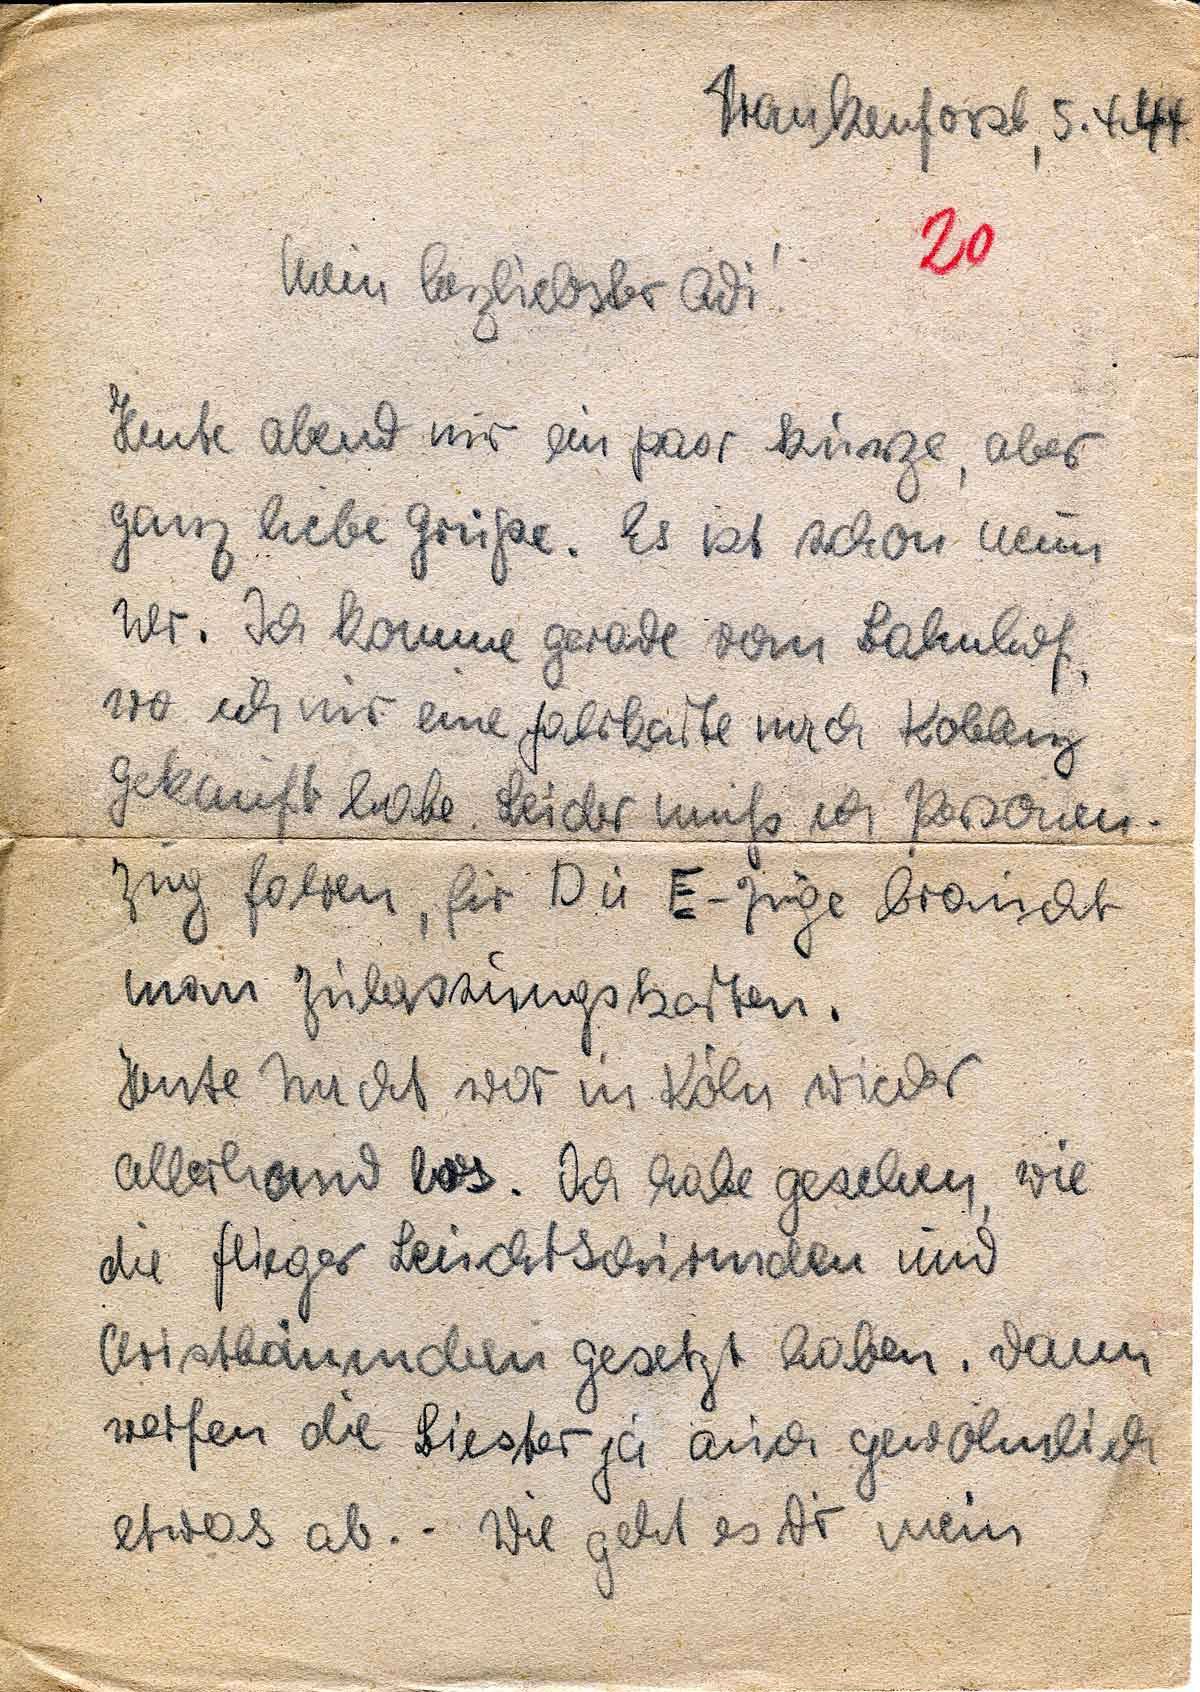 Frankenforst, 5.4.44
20
Mein herzliebster Adi!
Heute abend nur ein paar kurze, aber
ganz liebe Grüße. Es ist schon neun
Uhr. Ich komme gerade vom Bahnhof,
wo ich mir eine Fahrkarte nach Koblenz
gekauft habe. Leider muß ich Personen-
zug fahren, für D u E-Züge braucht
man Zulassungskarten.
Heute Nacht war in Köln wieder
allerhand los. Ich habe gesehen, wie
die Flieger Leuchtschirmchen und
Christbäumchen gesetzt haben. Dann
werfen die Biester ja auch gewöhnlich
etwas ab. - Wie geht es Dir mein